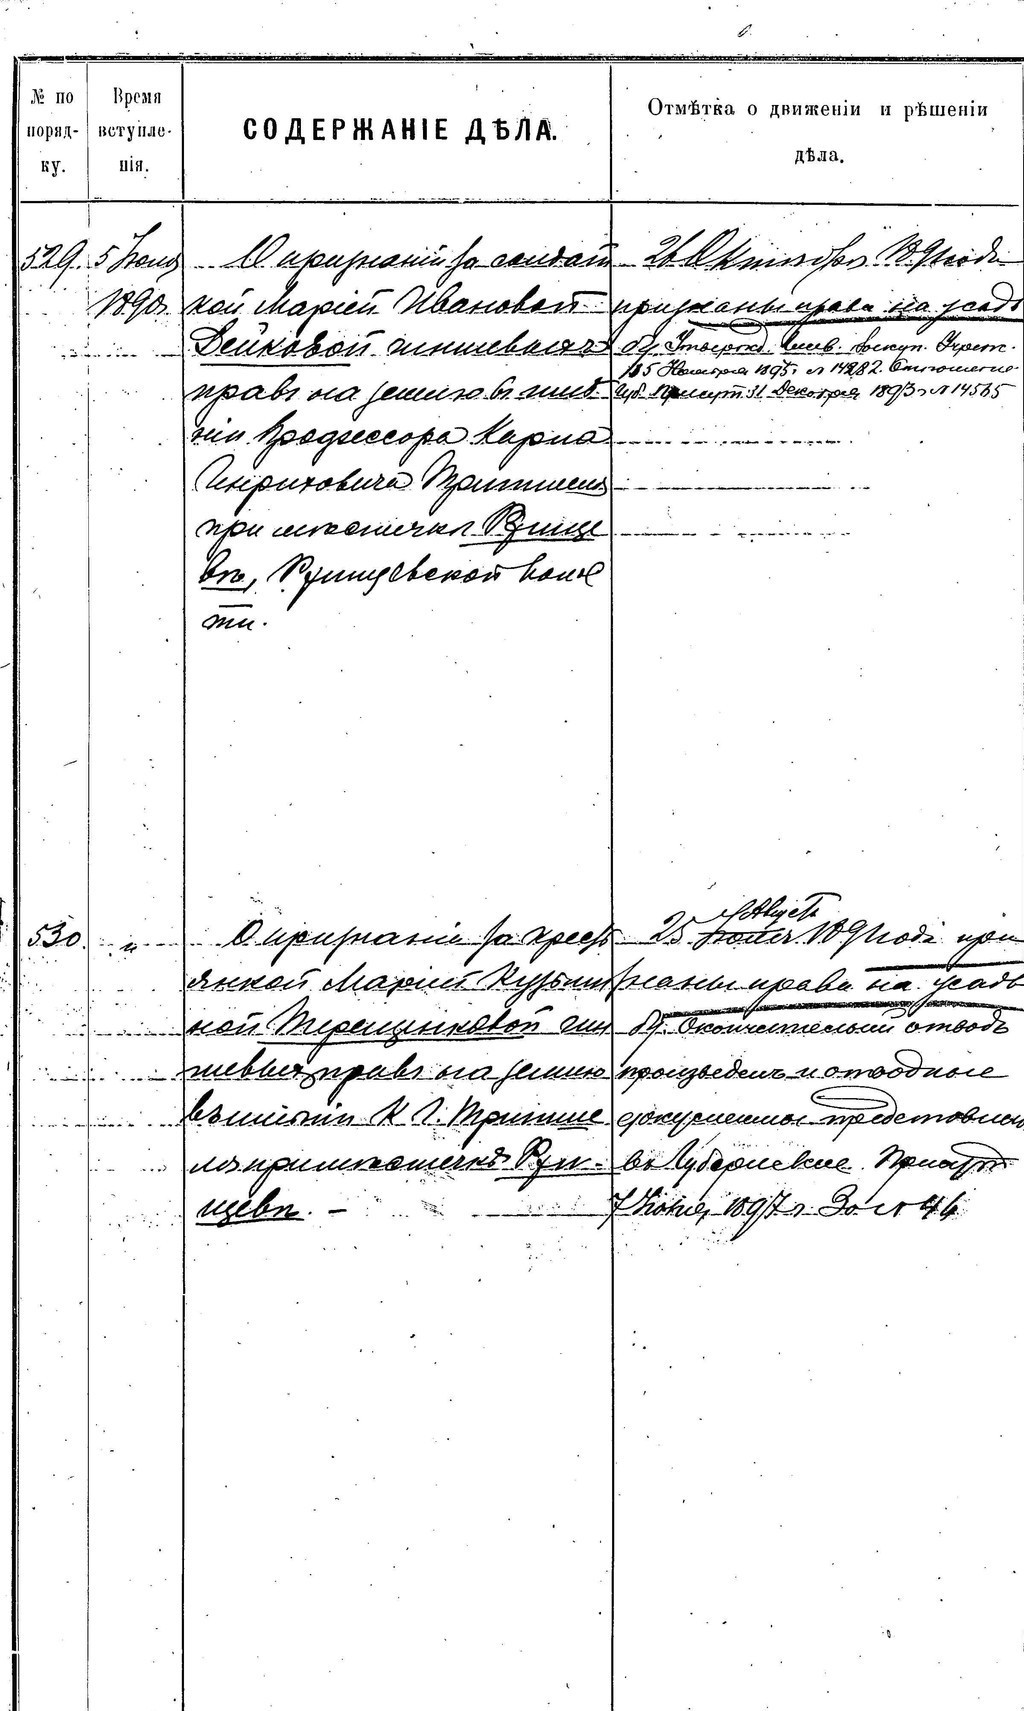 № по поряд-ку.
Время вступле-нія.
СОДЕРЖАНІЕ ДѢЛА.
Отмѣтка о движеніи и рѣшеніи
дѣла.
529. 5 Іюня
1890г.
О признаніи за солдат
кой Маріей Ивановой
Дейковой чиншевыхъ
правъ на землю въ имѣ
ніи Професcора Карла
Генриховича Тритшеля
при мѣстечкѣ Ржище
вѣ, Ржищевской волос
ти.
26 Октября 1891 года
признаны права на усадь
бу.
15 Ноября 1895 г. № 14282.
31 Декабря 1895 г. № 14565
530. "
О признаніи за кресть
янкой Маріей Кузьми
ной Терещенковой чин
шевыхъ правъ на землю
въ имѣніи К. Г. Тритше
ля при мѣстечкѣ Ржи-
щевѣ. —
Августа
23 Іюля 1891 года приз
наны права на усадь
бу. Окончательный отводъ
произведенъ и отводные
документы представлены
въ Губернское Присут
7 Іюня 1897 г. За № 46